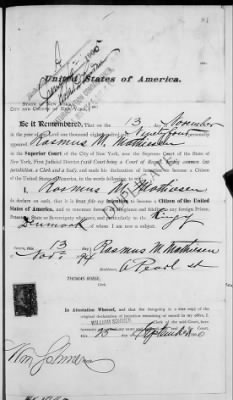 United States of America.
STATE OF NEW YORK,
CITY AND COUNTY OF NEW YORK,
Be it Remembered, That on the 13 day of November
in the year of our Lord one thousand eight hundred and Ninety four personally
appeared Rasmus M. Mathiesen
the Superior Court of the City of New York, now the Supreme Court of the State of
New York, First Judicial District (said Court being a Court of Record, having common law
jurisdiction, a Clerk and a Seal), and made his declaration of intention to become a Citizen
of the United States of America, in the words following to wit:
I, Rasmus M. Mathiesen
do declare on oath, that it is bona fide my intention to become a Citizen of the United
States of America, and to renounce forever all allegiance and fidelity to any foreign Prince,
Potentate, State or Sovereignty whatever, and particularly to the King of
Denmark of whom I am now a subject.
Sworn, this 13 day
Nov. 94
Rasmus M. Mathiesen
Residence, 6 Pearl st
THOMAS BOESE,
Clerk.
In Attestation Whereof, and that the foregoing is a true copy of the
original declaration of intention remaining of record in my office, I
WILLIAM SOHMER
the seal of the said Court, this
25 day of September
Wm Sohmer